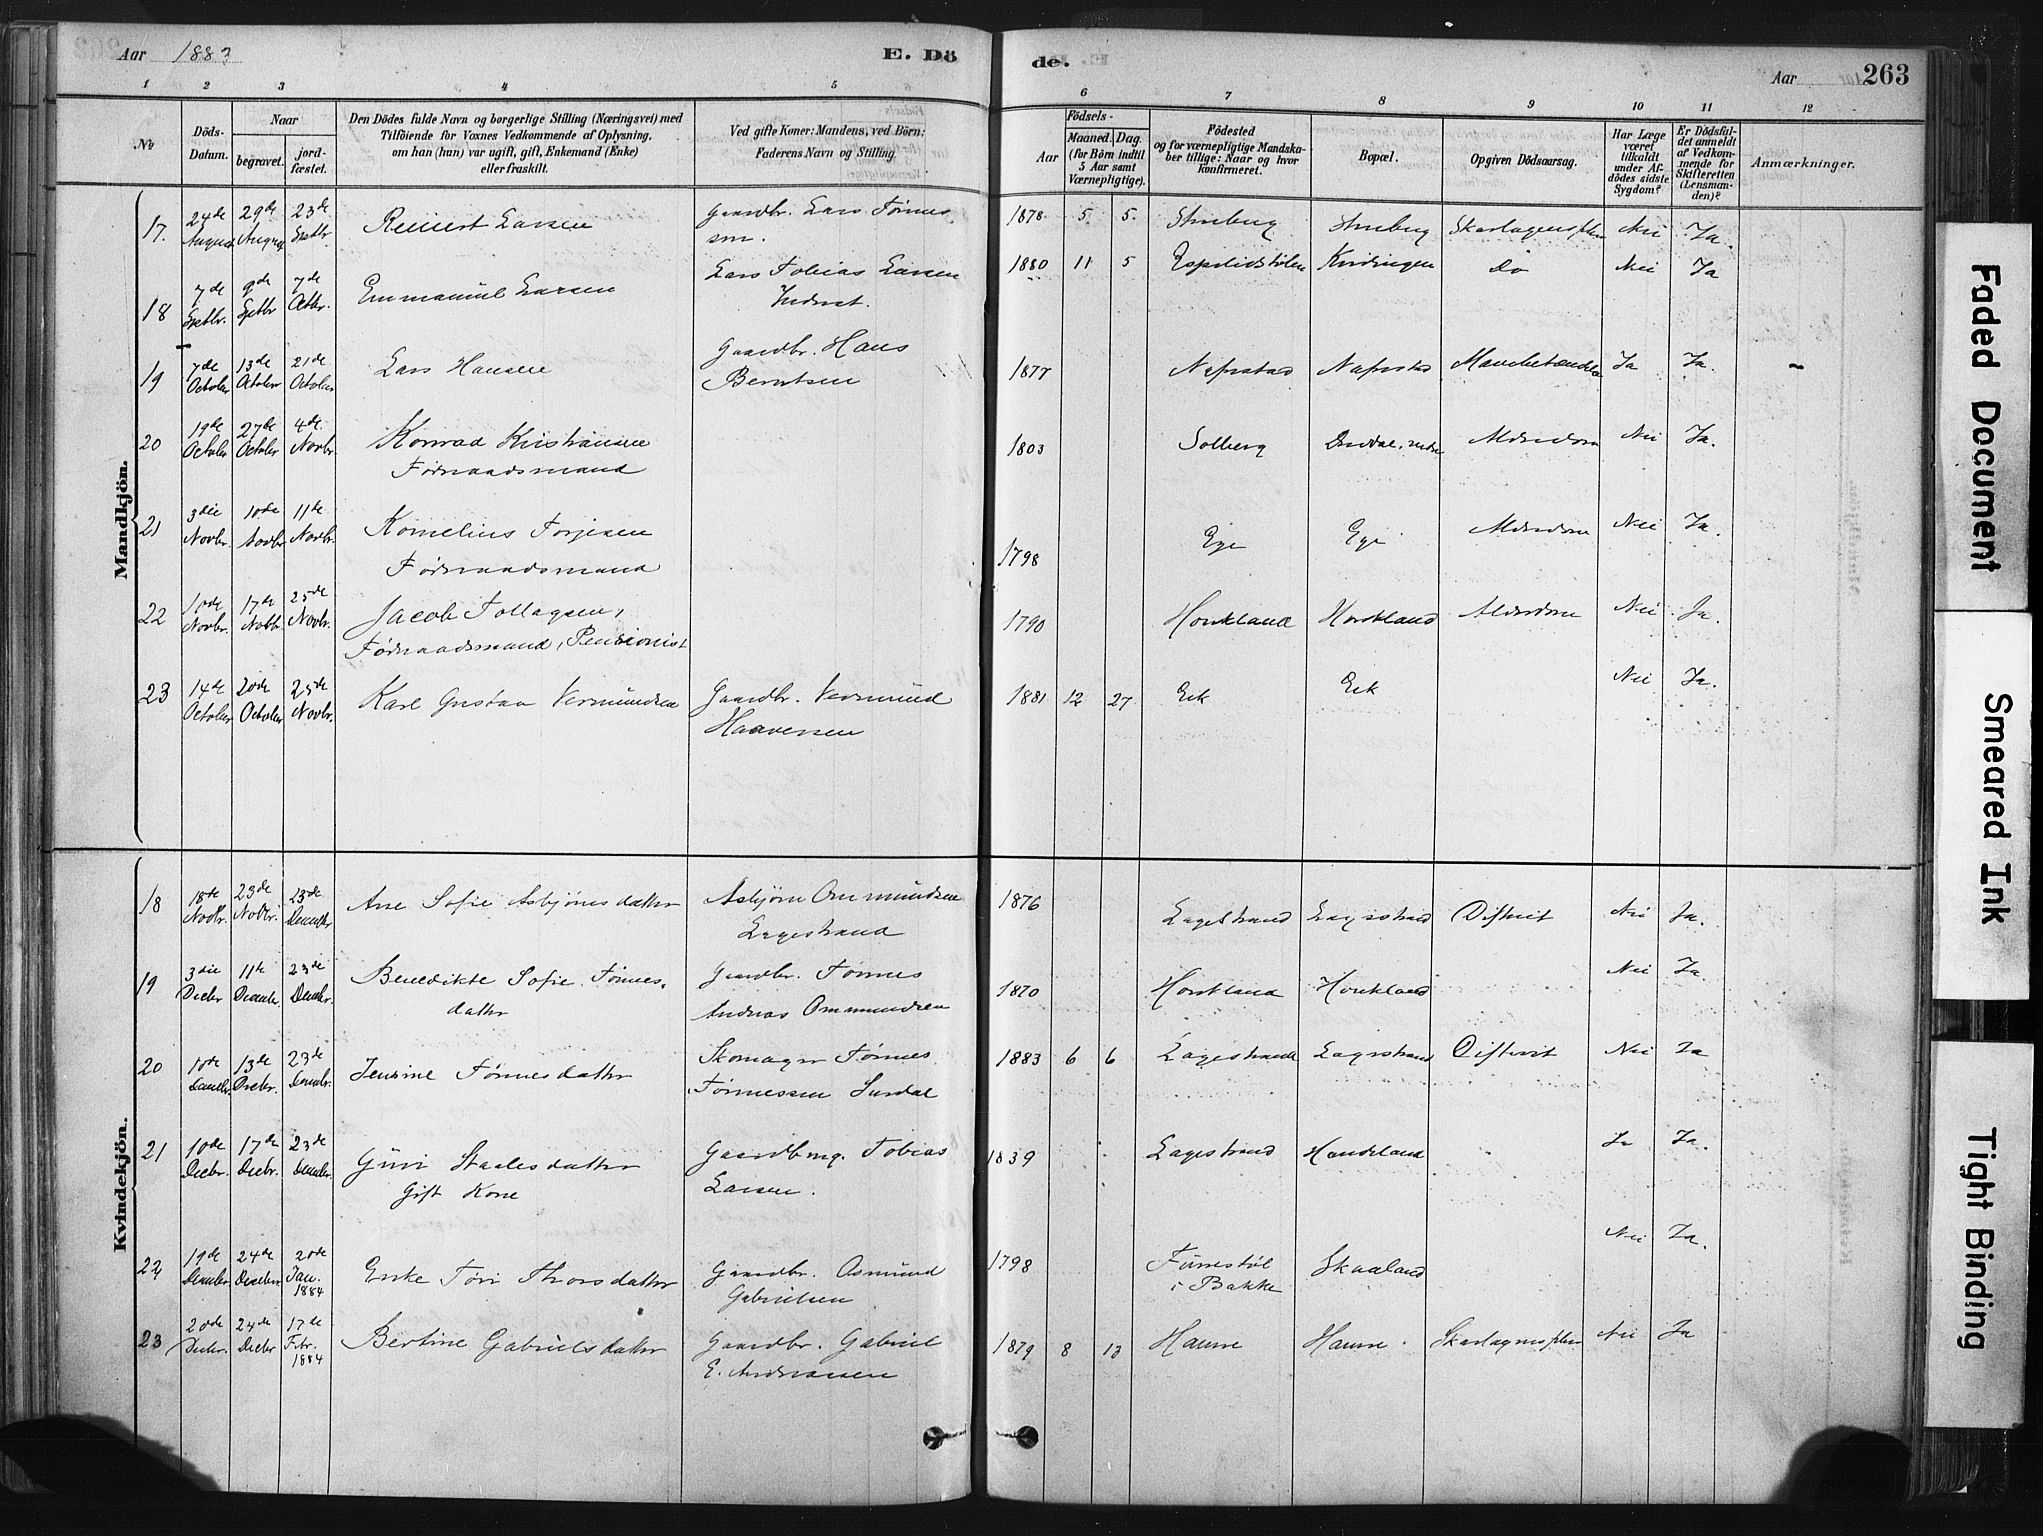 Aar 1883 E. Dö de. Aar 263
1 2 3 4 5 6 7 8 9 10 11 12
№
Döds-Datum.
Naar
begravet.
jord-fæstet.
Den Dödes fulde Navn og borgerlige Stilling (Næringsvei) med
Tilföiende for Voxnes Vedkommende af Oplysning,
om han (hun) var ugift, gift, Enkemand (Enke)
eller fraskilt.
Ved gifte Koner: Mandens, ved Börn:
Faderens Navn og Stilling.
Födsels-
Aar
Maaned. Dag.
(for Börn indtil
5 Aar samt
Værnepligtige).
Födested
og for værnepligtige Mandska-
ber tillige: Naar og hvor
konfirmeret.
Bopæl.
Opgiven Dödsaarsag.
Har Læge
været
tilkaldt
under Af-
dödes sidste
Sygdom?
Er Dödsfal-
det anmeldt
af Vedkom-
mende for
Skifteretten
(Lensman-
den)?
Anmærkninger.
Mandkjön.
17. 24de August 29de August 23de Septbr. Reinert Larsen Gaardbr. Lars Tønnes
sen. 1878 5 5. Skarlagensfeber Nei Ja.
18 7de Septbr. 9de Septbr 7de Octbr. Emmanuel Larsen Lars Tobias Larsen
Inderst. 1880 11 5 Do Nei Ja
19 7de October 13de October 21de October Lars Hansen Gaardbr. Hans
Berntsen 1877 Ja Ja.
20 19de October 27de October 4de Novbr. Konrad Kristiansen
Føderaadsmand 1803 Solberg Alderdom Nei Ja.
21 3die Novbr. 10de Novbr 11te Novbr. Kornelius Torjesen
Føderaadsmand 1798 Ege Ege Alderdom Nei Ja.
22 10de Novbr. 17de Novbr. 25de Novbr. Jacob Tollagsen,
Føderaadsmand, Pensionist 1790 Alderdom Nei Ja.
23 14de October 20de October 25de Novbr. Karl Gustav Vermundsen Gaardbr. Vermund
Haaversen 1881 12 27 Eek Eek Nei Ja.
Kvindekjön.
18 18de Novbr. 23de Novbr. 23de Decembr Ane Sofie Asbjørnsdatter Asbjørn Ommundsen
Lagestrand 1876 Lagestrand Lagestrand Difterit Nei Ja.
19 3die Decbr 11te Decembr. 23de Decembr. Benedikte Sofie Tønnes-
datter Gaardbr. Tønnes
Andreas Ommundsen 1870 Nei Ja.
20 10de Decembr. 13de Decbr. 23de Decembr. Jensine Tønnesdatter Skomager Tønnes
Tønnessen Surdal 1883 6 6 Lagestrand Lagestrand Difterit Nei Ja
21 10de Decbr. 17de Decbr. 23de Decembr. Guri Staalesdatter
Gift Kone Gaardbrug. Tobias
Larsen. 1839 Lagestrand Ja Ja.
22 19de Decembr. 24de Decembr 20de Jan. 1884 Enke Tori Thorsdatter Gaardbr. Osmund
Gabrielsen 1798 i Bakke Skaaland Nei Ja.
23 20de Decbr. 24de Decbr 17de Febr. 1884 Bertine Gabrielsdatter Gaardbr. Gabriel
E. Andreasen 1879 8 13 Haune Haune. Skarlagensfeber Nei Ja
Faded Document
Smeared Ink
Tight Binding